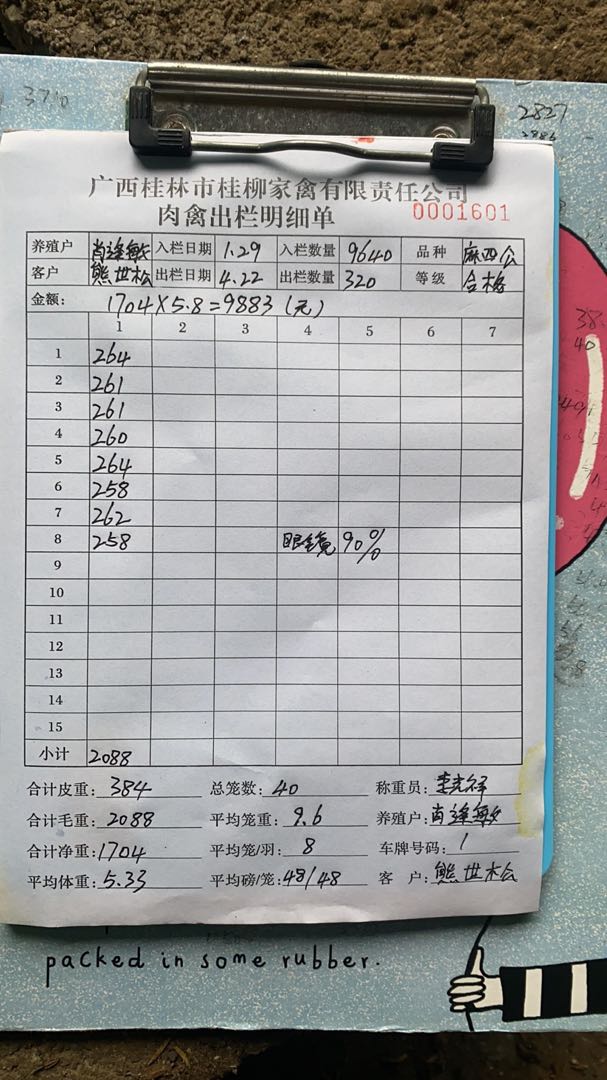 3710
2827
2886
广西桂林市桂柳家禽有限责任公司
肉禽出栏明细单 0001601
养殖户 肖逢敏 入栏日期 1.29 入栏数量 9640 品种 麻四公
客户 熊世松 出栏日期 4.22 出栏数量 320 等级 合格
金额: 1704×5.8=9883(元)
1 2 3 4 5 6 7
1 264
2 261
3 261
4 260
5 264
6 258
7 262
8 258 眼镜 90%
9
10
11
12
13
14
15
小计 2088
合计皮重: 384 总笼数: 40 称重员:
合计毛重: 2088 平均笼重: 9.6 养殖户: 肖逢敏
合计净重: 1704 平均笼/羽: 8 车牌号码: 1
平均体重: 5.33 平均磅/笼: 48/48 客 户: 熊世松
packed in some rubber.